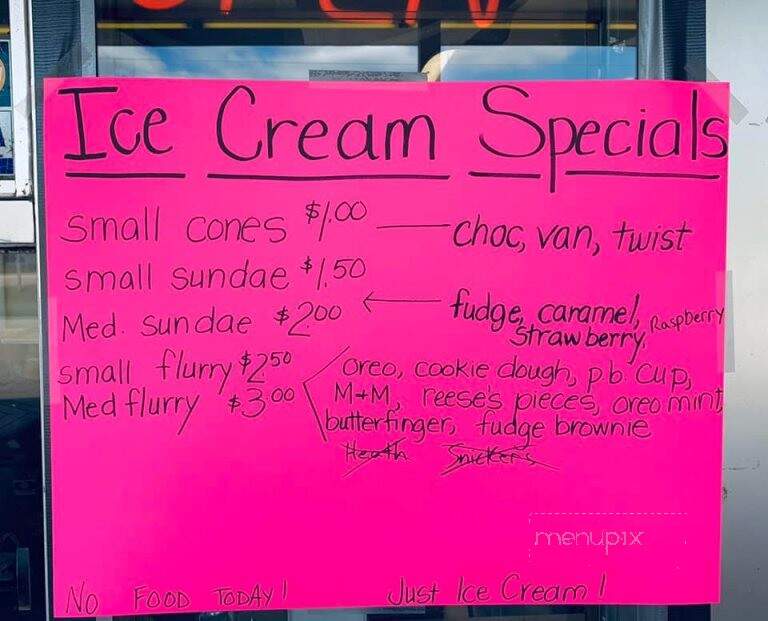 OPEN
Ice Cream Specials
small cones $1.00 choc, van, twist
small sundae $1.50
Med. sundae $2.00 fudge, caramel, Raspberry
strawberry,
small flurry $2.50 oreo, cookie dough, pb cup,
Med flurry $3.00 M+M, reese's pieces, oreo mint,
butterfinger, fudge brownie
Heath Snickers
menupix
No FOOD TODAY! Just Ice Cream!